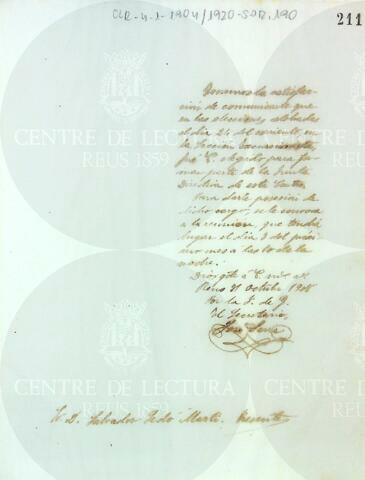 CLR-4-1-1904/1920-SOR.190
211
Tenemos la satisfac-
ción de comunicarle que
en las elecciones celebradas
el dia 24 del corriente, en
la Sección
fué V. elegido para for-
mar parte de la Junta
Directiva de este Centro.
Para darle posesion de
dicho cargo, se le convoca
a la reunion, que tendrá
lugar el dia 3 del próxi-
mo mes a las 10 de la
noche.
Dios gde á V. ms. as.
Reus 31 Octubre 1908
Por la J. de G.
El Secretario,
José Serra
Sr. D. Salvador Sedó Martí. Presente
CENTRE DE LECTURA
REUS 1859
CENTRE DE LECTURA
REUS 1859
CENTRE DE LECTURA
REUS 1859
CENTRE DE LECTURA
REUS 1859